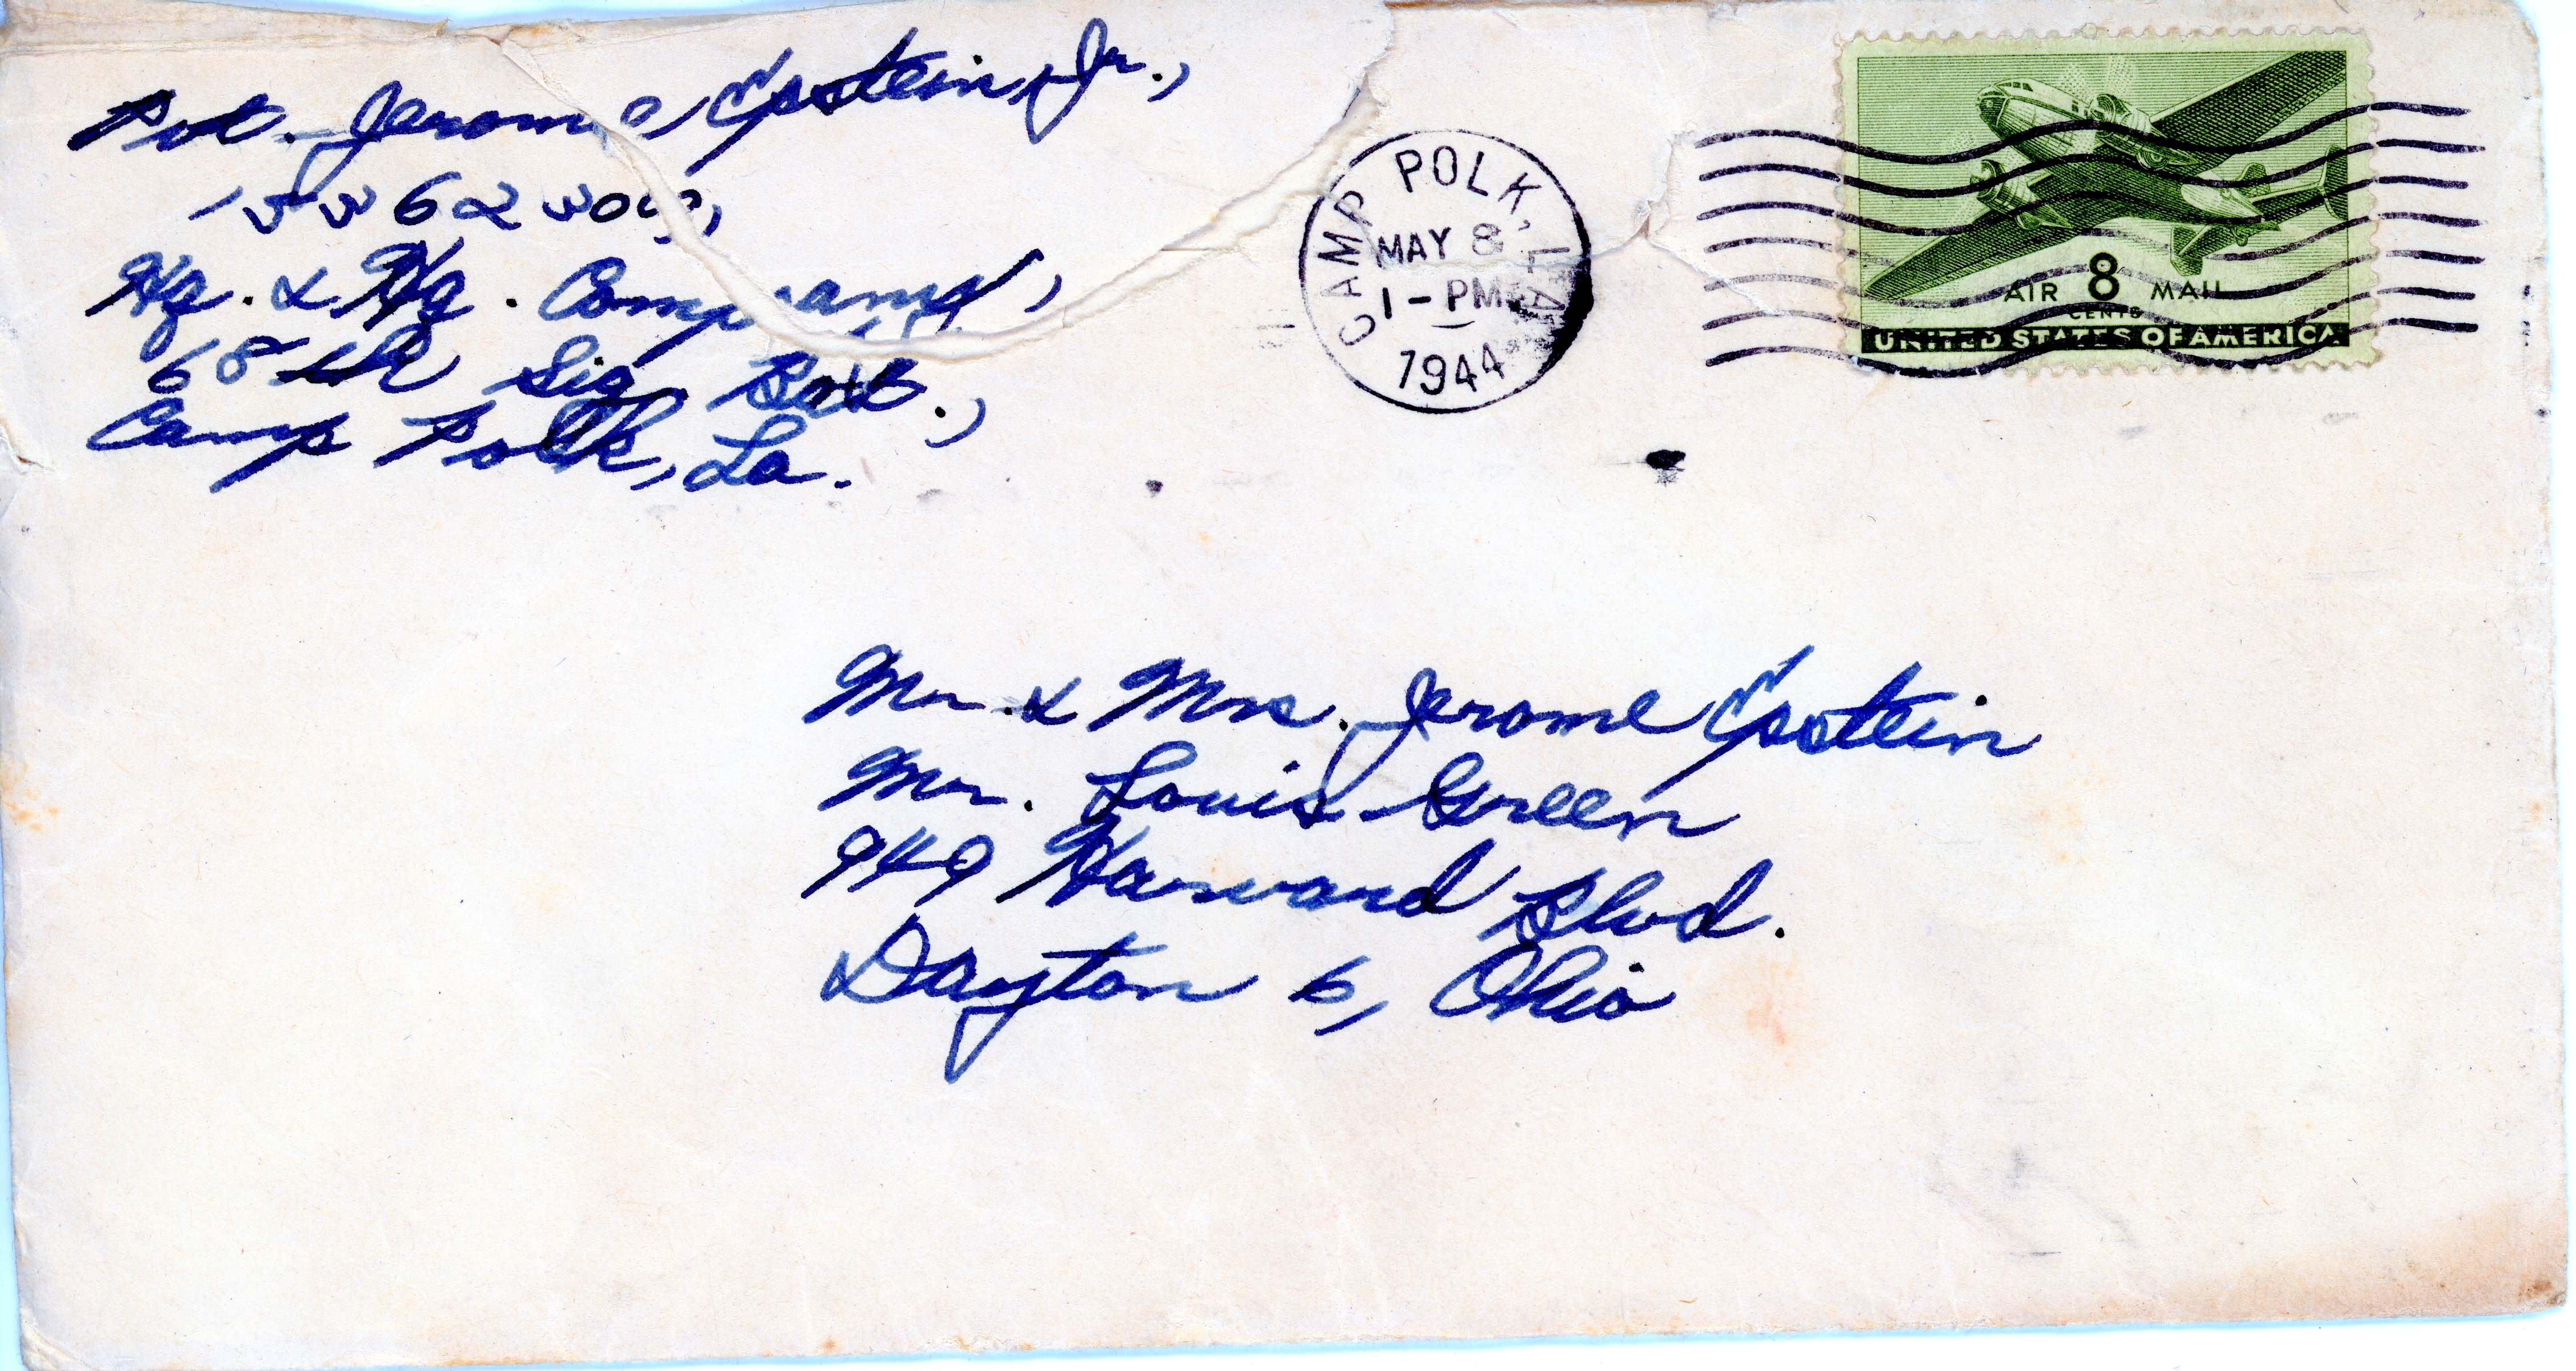 Pvt. Jerome Epstein, Jr.,
Hq. & Hq. Company,
68th Sig Batt.,
Camp Polk, La.
CAMP POLK, LA.
MAY 8
1 - PM
1944
AIR 8 MAIL
CENTS
UNITED STATES OF AMERICA
Mr. & Mrs. Jerome Epstein
Mr. Louis Green
949 Harvard Blvd.
Dayton 6, Ohio